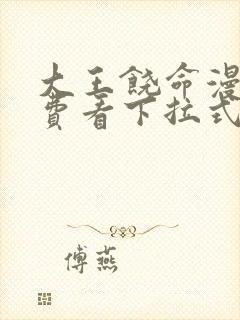 大王饶命漫
费看下拉式
傅燕